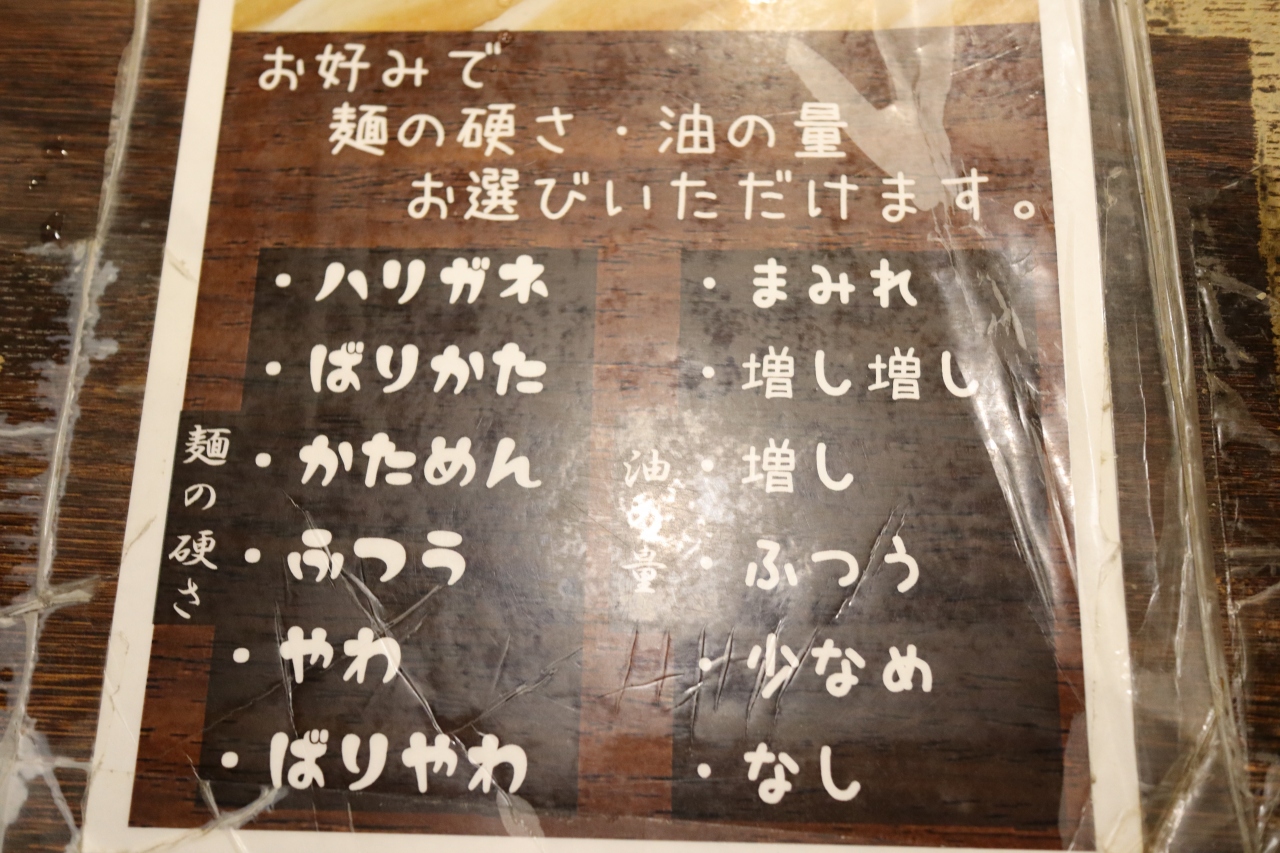 お好みで
麺の硬さ・油の量
お選びいただけます。
麺の硬さ
・ハリガネ
・ばりかた
・かためん
・ふつう
・やわ
・ばりやわ
油の量
・まみれ
・増し増し
・増し
・ふつう
・少なめ
・なし